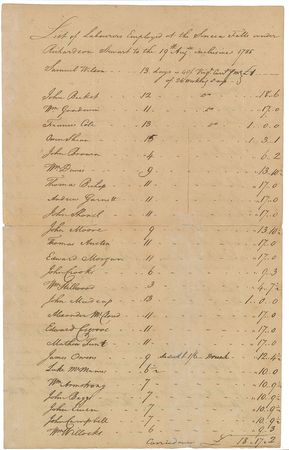 List of Labourers Employed at the Seneca Falls under
Richardson Stewart to the 19th Augt inclusive 1785
Samuel Wilson 13 days
of 26 working days
John Becket 12 do 18.6
Wm Goodwin 11 do 17.0
Francis Cole 13 do 1.0.0
Owen Shine 15 1.3.1
John Brown 4 6.2
Wm Dowe 9 13.10
Thomas Bishop 11 17.0
Andrew Garnett 11 17.0
John Shovel 11 17.0
John Moore 9 13.10
Thomas Austin 11 17.0
Edward Morgan 11 17.0
John Crooks 6 9.3
Wm Hillwood 3 4.7½
John 13 1.0.0
Alexander McCloud 11 17.0
Edward 11 17.0
Mathew 11 17.0
James Owens 9 12.4½
Luke McManus 10.0
Wm Armstrong 7 10.9½
John 7 10.9½
John 7 10.9½
John Campbell 7 10.9½
Wm Willocks 6 9.3
Carried over £ 18.17.2